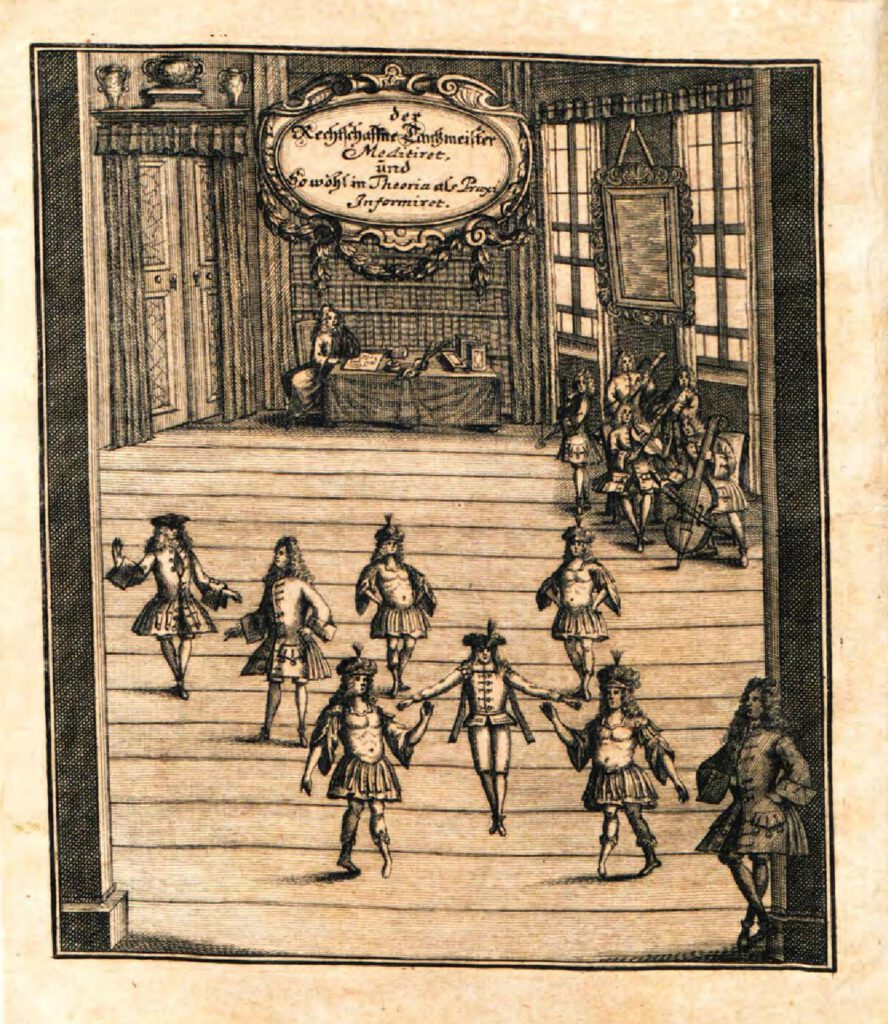 der
Rechtschaffne Tantzmeister
Meditiret,
und
So wohl in Theoria als Praxi
Informiret.